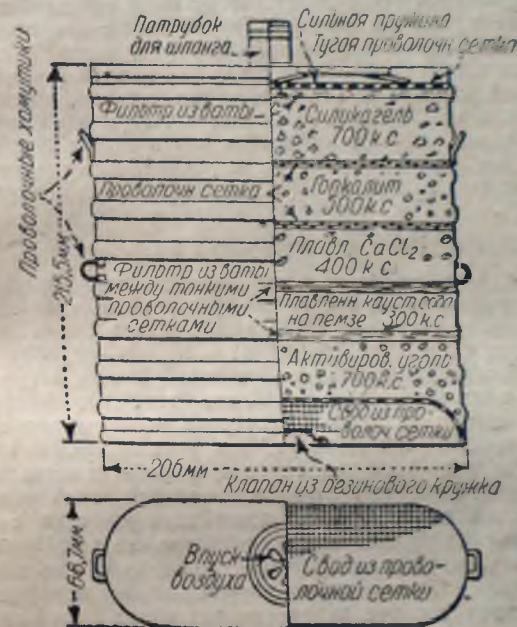 Патрубок
для шланга
Сильная пружина
Тугая проволочн сетка
Проволочные хомутики
215,5мм
Фильтр из ваты
Силикагель
700 к.с
Проволочн сетка
Гопкалит
300к.с
Плавл. CaCl2
400 к с
Фильтр из ваты
между тонкими
проволочными
сетками
Плавленн кауст сода
на пемзе 300 к.с
Активиров. уголь
700к.с.
Свод из про-
волоч сетки
206мм
Клапан из резинового кружка
66,7мм
Впуск
воздуха
Свод из прово-
лочной сетки